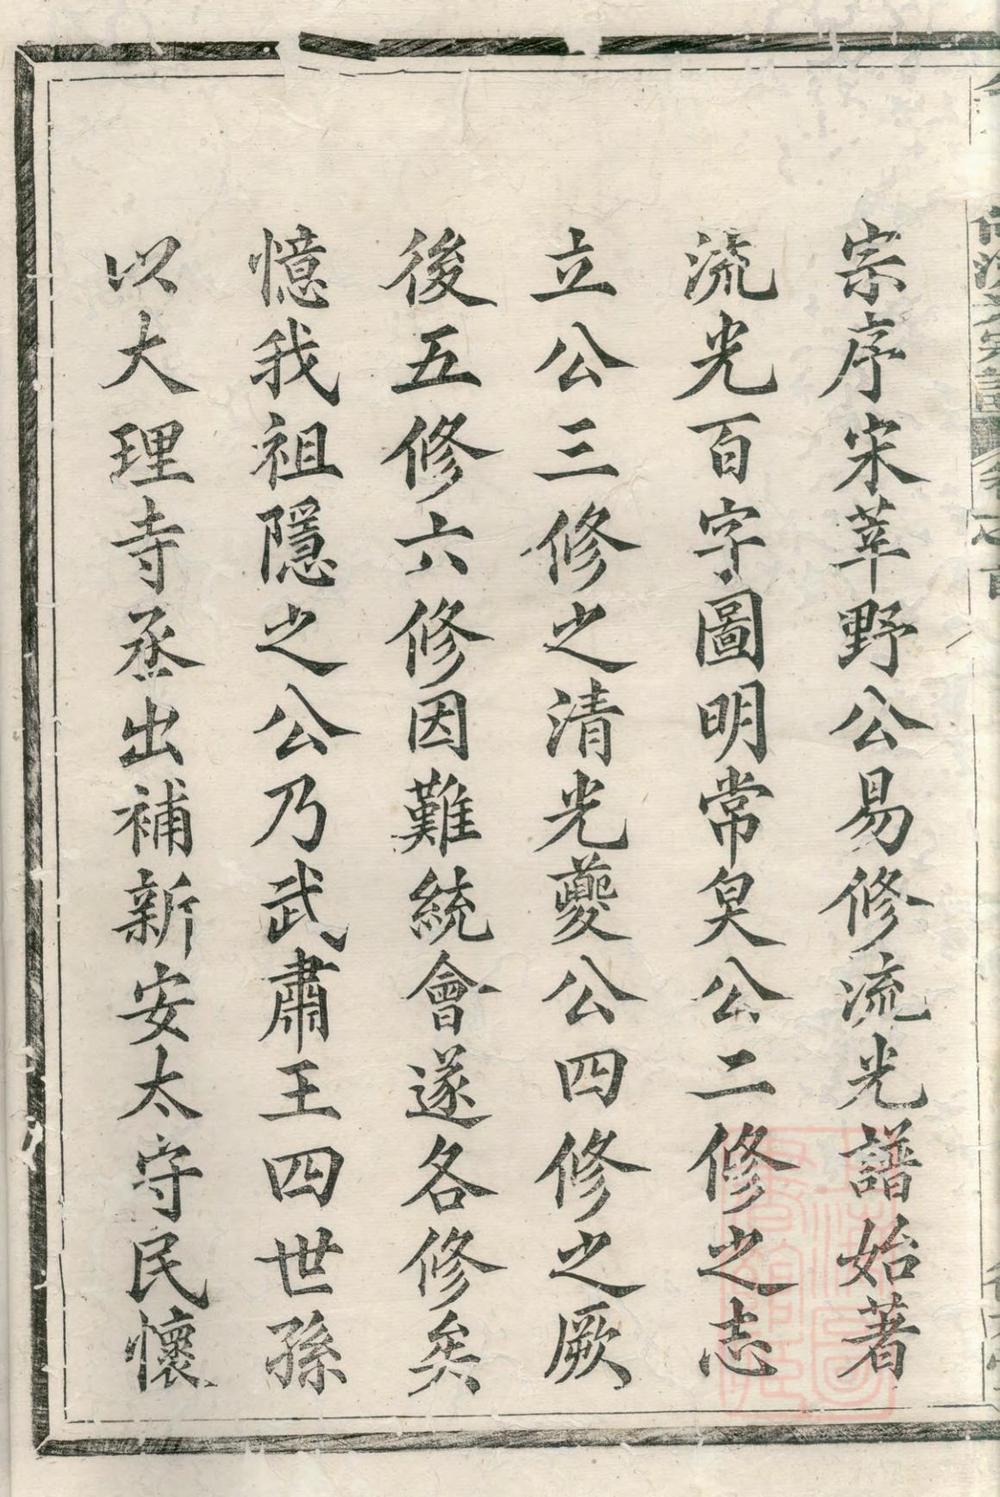 宗序宋莘野公易修流光譜始著
流光百字圖明常㚖公二修之志
立公三修之清光夔公四修之厥
後五修六修因難統會遂各修矣
憶我祖隱之公乃武肅王四世孫
以大理寺丞出補新安太守民懷